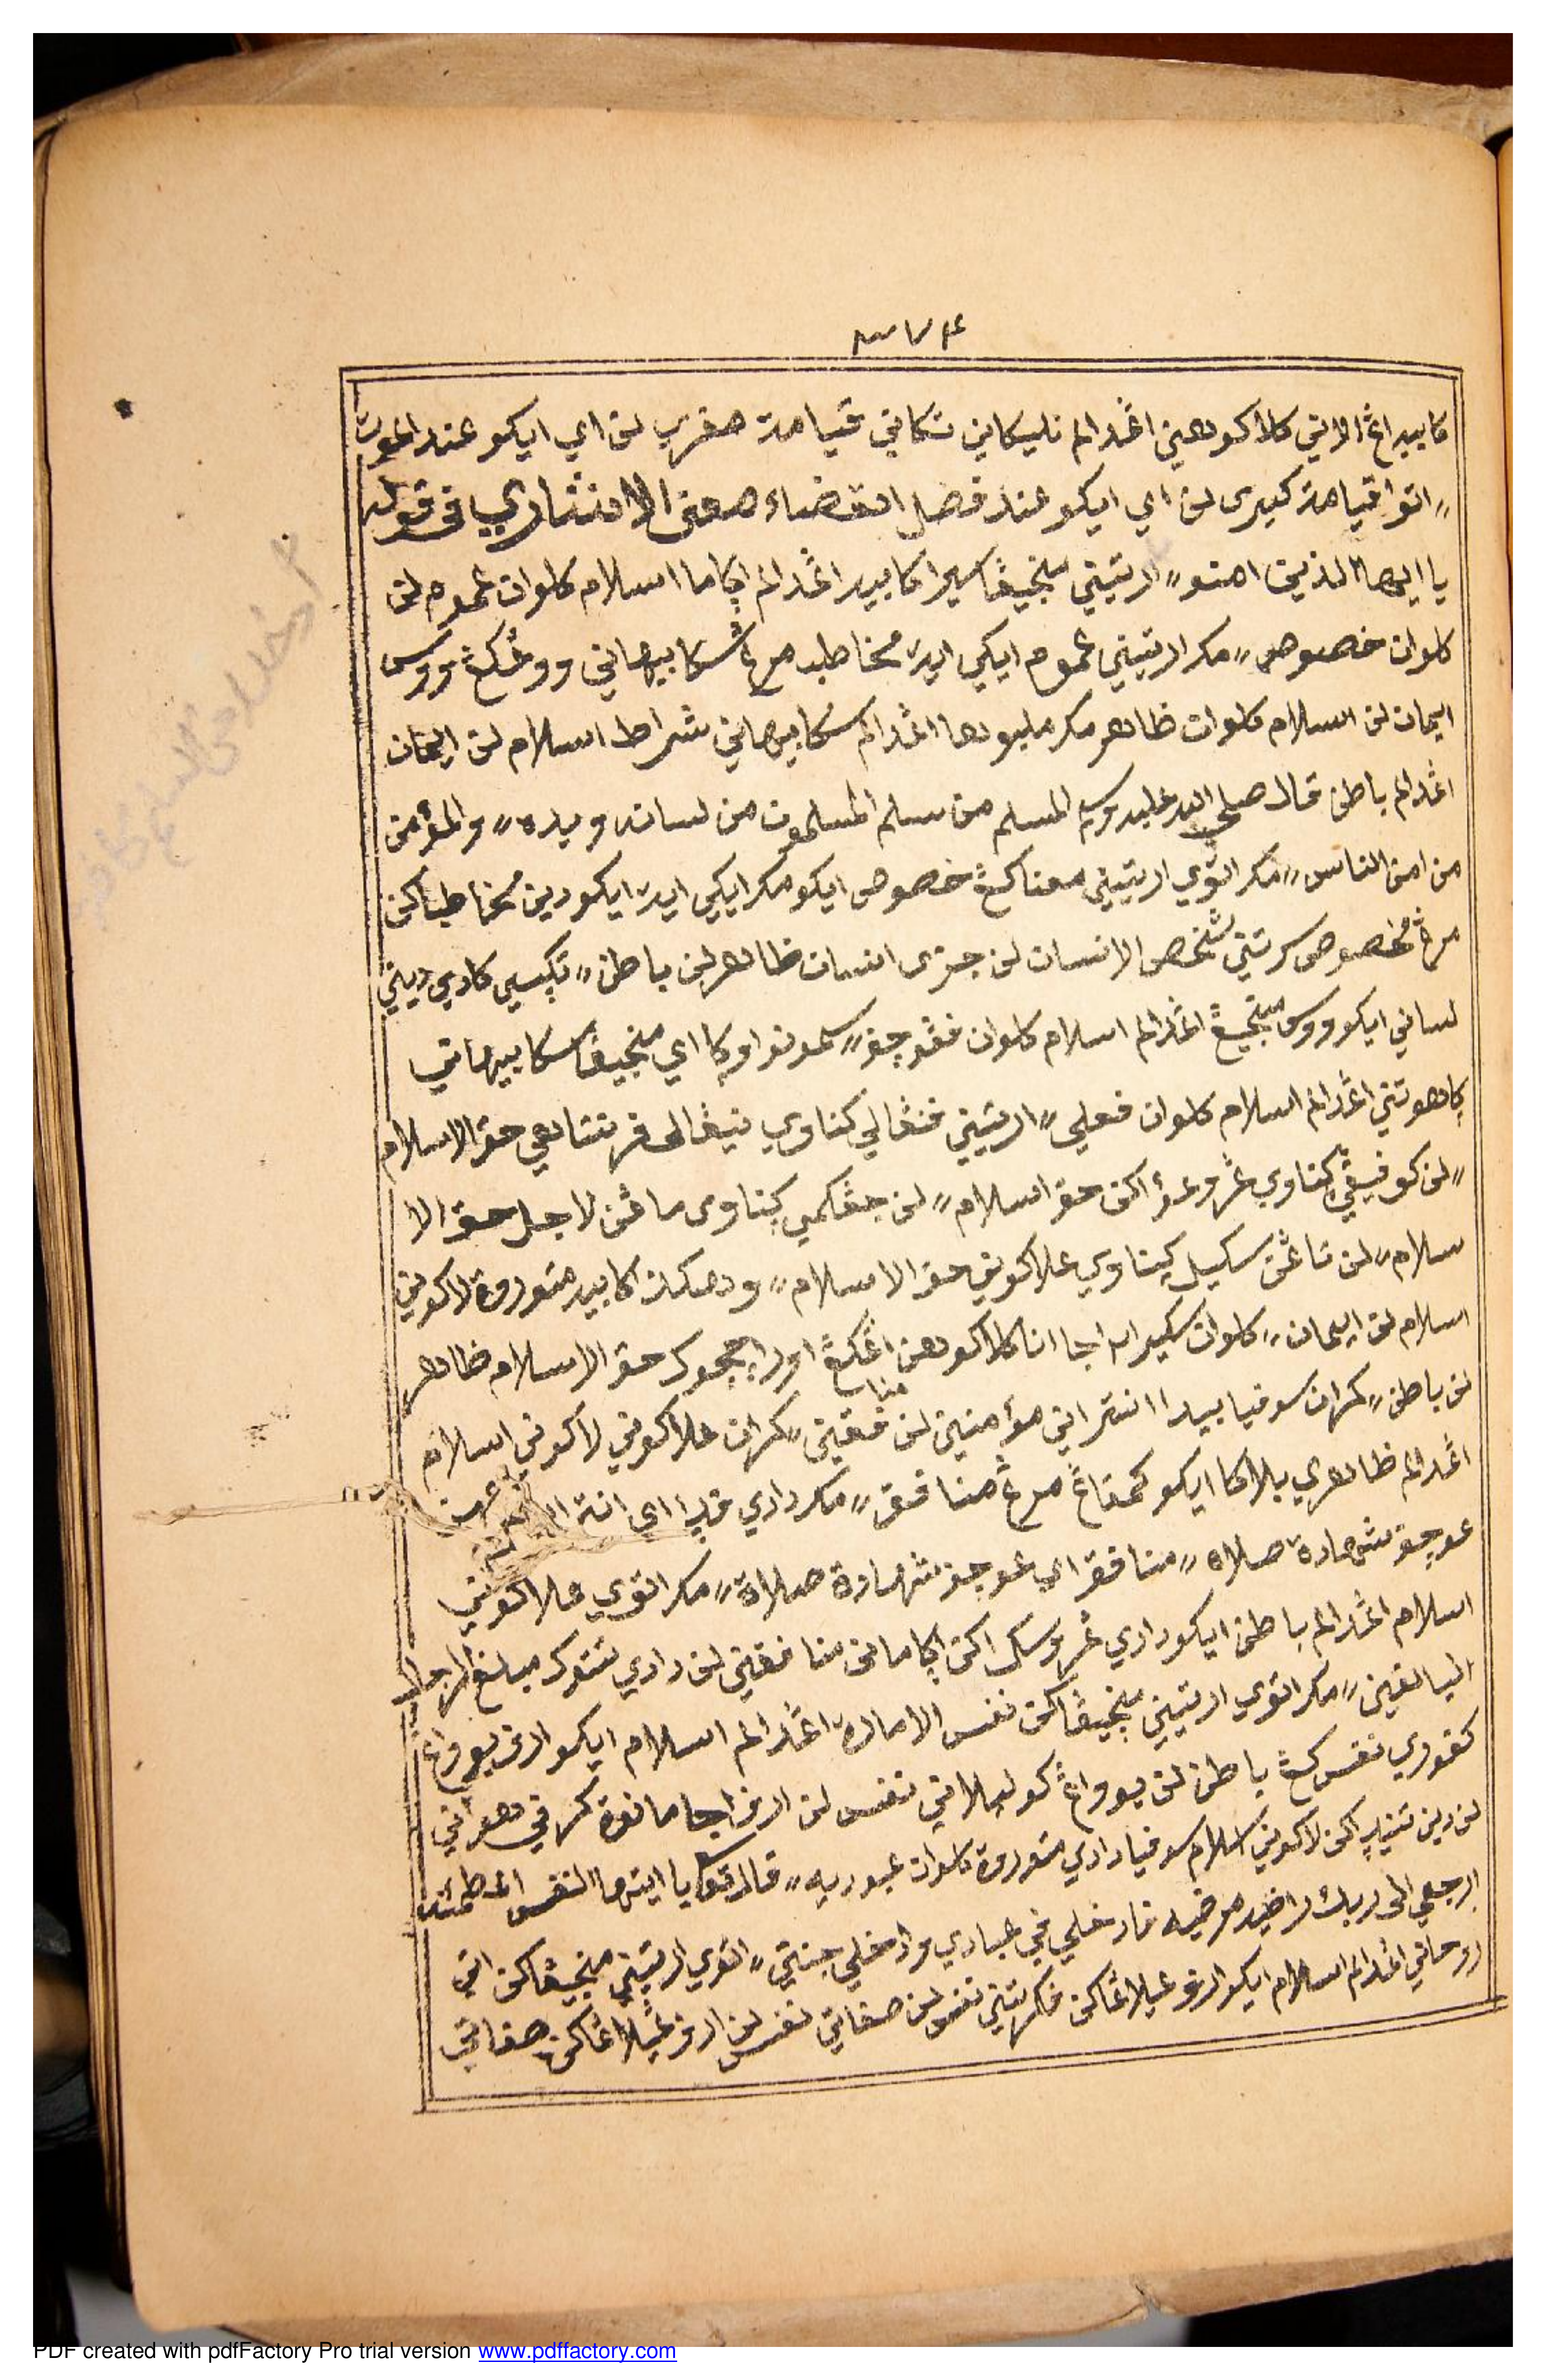 كابيه اڠ الاتي كلاكوهين اڠدالم نليكاني تكاني قيامة صغرى لن اي ايكو عند الموت
〃 اتوا قيامة كبرى لن اي ايكو عند فصل القضاء معنى الافشاري فى قوله
يا ايها الذين امنو 〃 ارتيني منجيڠا سيرا كابيه اڠدالم اكاما اسلام كلوان عموم لن
كلوان خصوص 〃 مكر ارتيني عموم ايكي اية مخاطبه مرڠ سكابيهاني ووڠكڠ ووس
ايمان لن اسلام كلوان ظاهر مكر مليبوها اڠدالم سكابيهاني شراط اسلام لن ايمان
اڠدالم باطن قال صلى الله عليه وسلم المسلم من سلم المسلمون من لسانه ويده 〃 والمؤمن
من امن الناس 〃 مكر اتوي ارتيني معناكڠ خصوص ايكو مكر ايكي اية ايكو دين مخاطباكن
مرڠ مخصوص سرتني شخص الانسان لن جزى انسان ظاهر لن باطن 〃 تكسي كادي ديني
لساني ايكو ووس منجيڠ اڠدالم اسلام كلوان فڠوجف 〃 سمونو اوكا اي منجيڠا سكابيهاني
كاهوتني اڠدالم اسلام كلوان فعلي 〃 ارتيني فنڠالي كناوي نيڠالى فرتتاهي حق الاسلام
〃 لن كوفيڠي كناوي ڠروڠؤاكن حق اسلام 〃 لن جڠكمي كناوى ماڠن لاجل حق الا
سلام 〃 لن تاڠن سكيل كيناوي علاكوني حق الاسلام 〃 ودهكذ كابيه متوروة لاكوني
اسلام لن ايمان 〃 كلوان سكيرا٢ اجا انا كلاكوهن اڠكڠ اورا جوجوك حق الاسلام ظاهر
لن باطن 〃 كران سوفيا بيدا انتراني مؤمنين لن منافقين 〃 كران علاكوني لاكوني اسلام
اڠدالم ظاهري بلاكا ايكو كمفاڠ مرڠ منافق 〃 مكر دادي فدا اى انتا
عوجف شهادة صلاة 〃 منافق اي عوجف شهادة صلاة 〃 مكر اتوي علاكوني
اسلام اڠدالم باطن ايكو دادي ڠروسك اكن اكامانى منافقين لن دادي تتوك مبلغ الرجال
البالغين 〃 مكر اتوي ارتيني منجيڠاكن نفس الامارة اڠدالم اسلام ايكو ارف بوواڠ
كفوري نفس كڠ باطن لن بوواڠ كوليلاني نفس لن ارف اجا مانوة كرفي هواني
لن دين تتفاكن لاكوني اسلام سوفيا دادي متوروة كلوان عبوديه 〃 قال تع يا ايتها النفس المطمئنة
ارجعي الى ربك راضية مرضيه فادخلي في عبادي وادخلي جنتي 〃 اتوي ارتيني منجيڠاكن اتي
روحاني اڠدالم اسلام ايكو ارف عيلاڠاكن فكرتيني نفس لن صفاتي نفس لن ارف ڠيلاڠاكن صفاتي